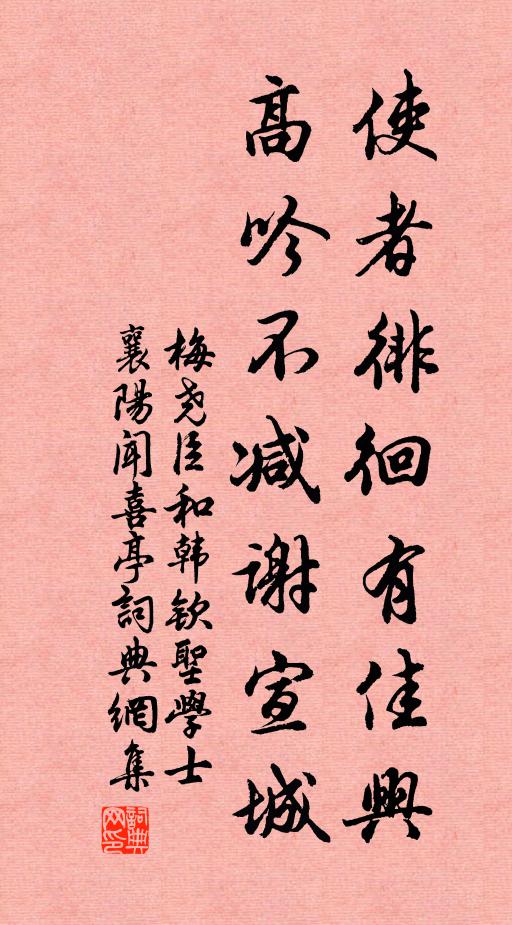 使者徘徊有佳興
高吟不减謝宣城
梅尧臣和韩钦聖學士
襄陽闻喜亭詞典網集
詞典网印